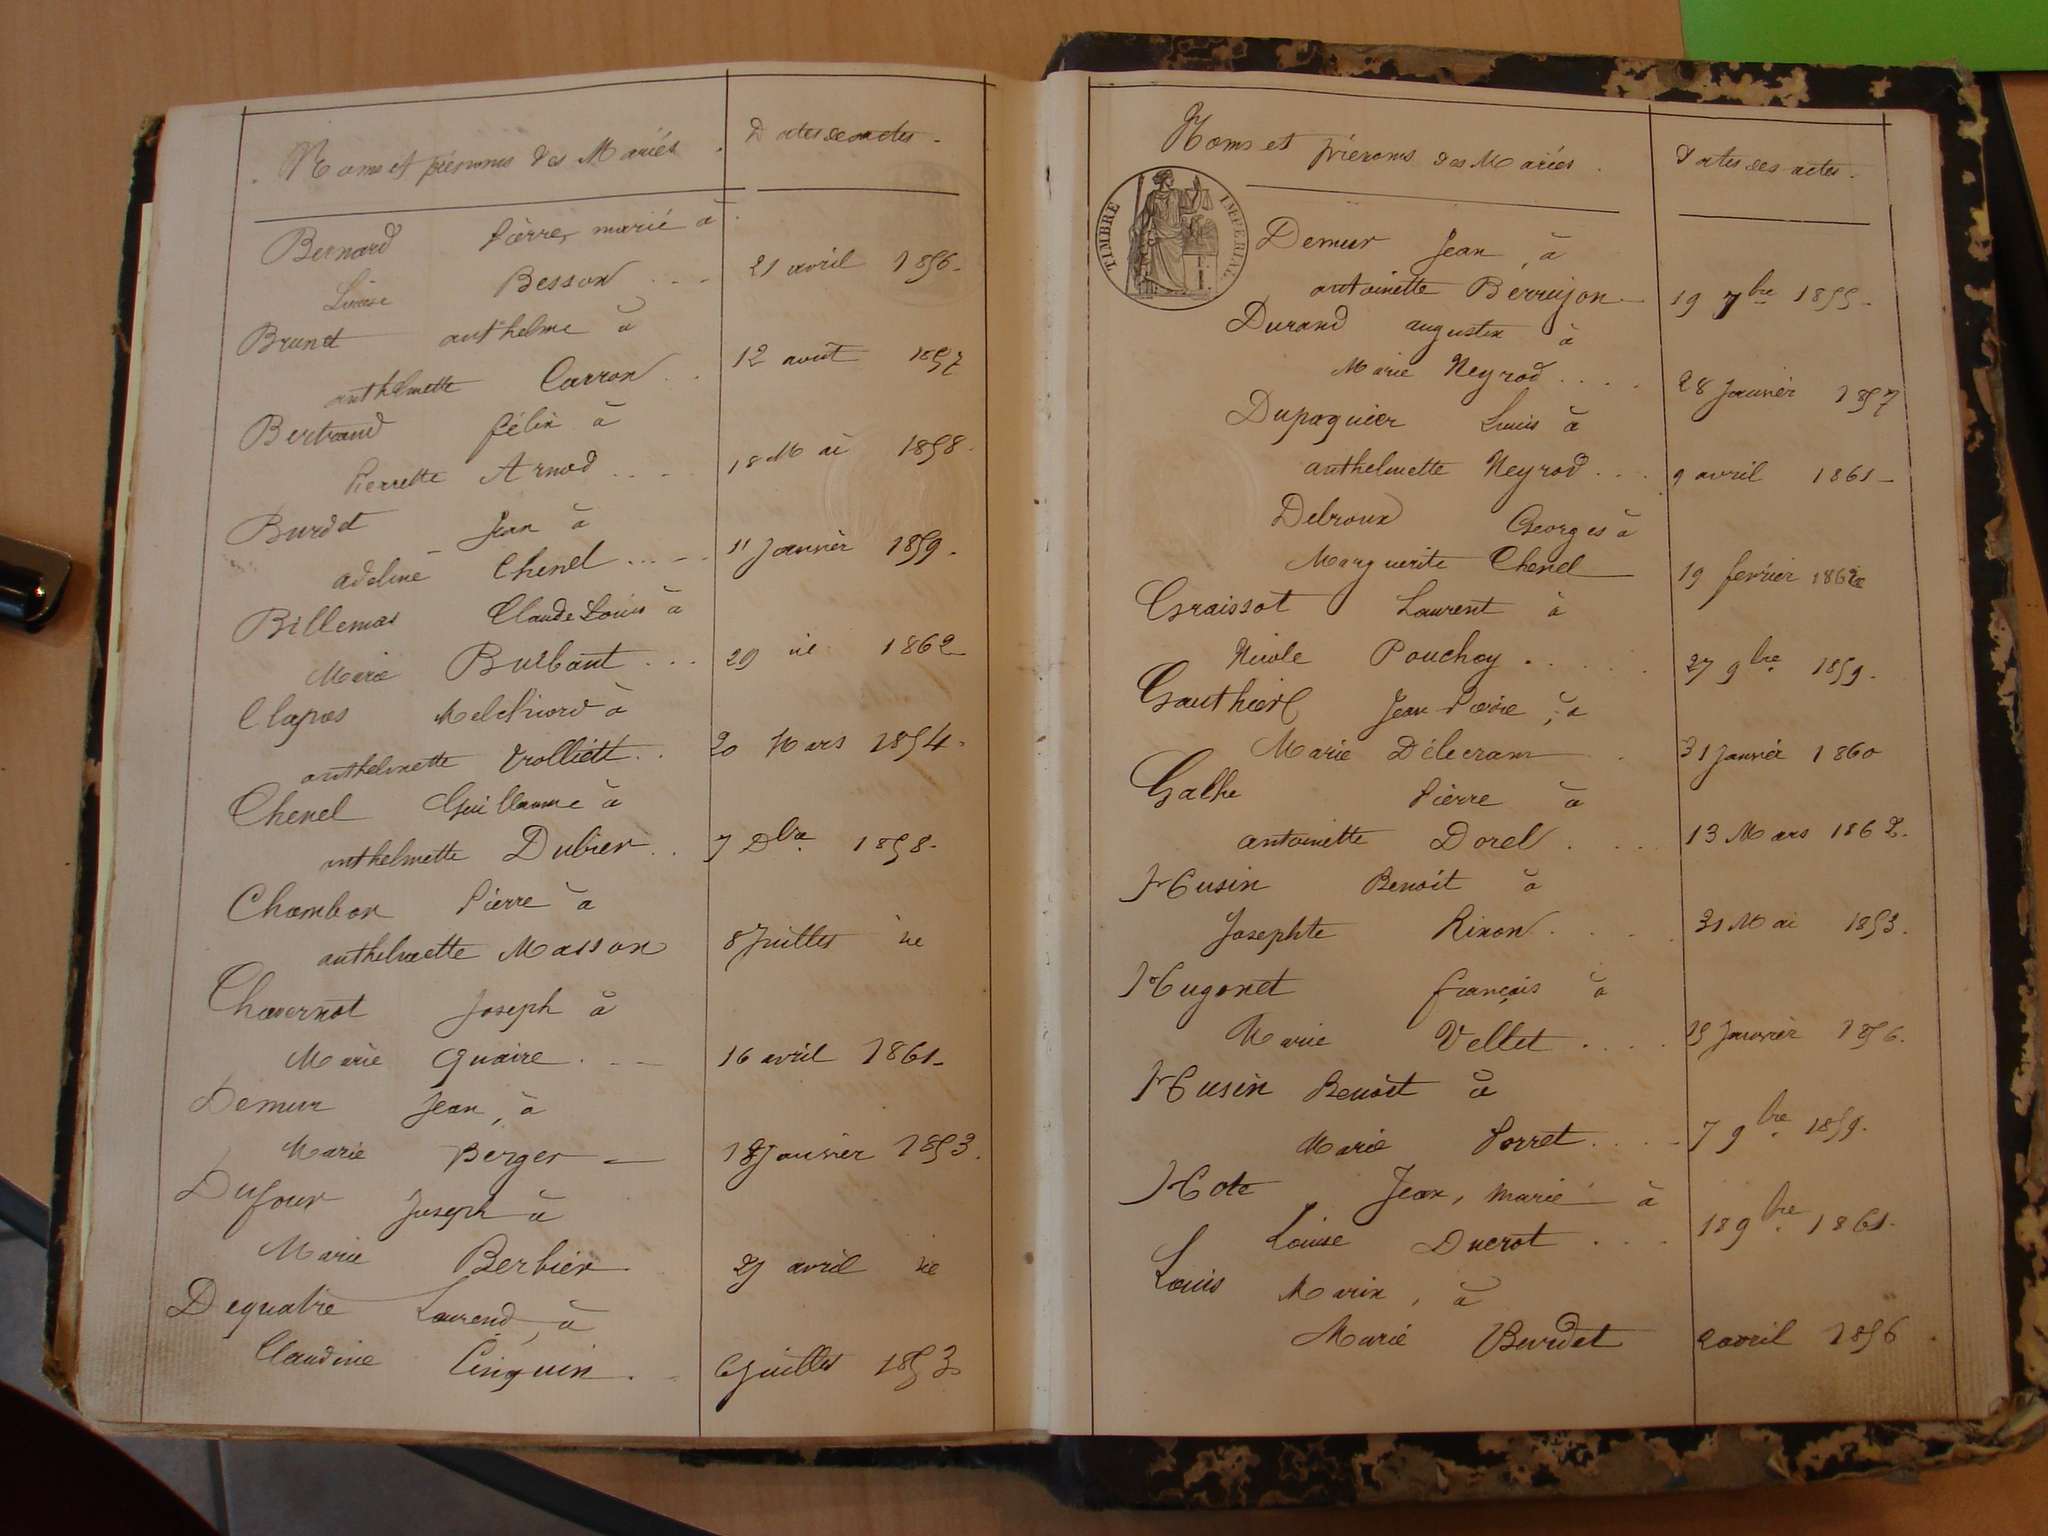 Noms et prénoms des Mariés. Dates des actes.
Bernard Pierre, marié à
Louise Besson .... 21 avril 1856.
Brunet anthelme à
anthelmette Carron .. 12 août 1857
Bertrand félix à
Pierrette Arnod .... 18 Mai 1858.
Burdet Jean à
adeline Chenel .... 11 Janvier 1859.
Billemas Claude Louis à
Marie Burbant ... 29 id 1862
Clapos Melchiord à
anthelmette Trolliett .. 20 Mars 1854.
Chenel Guillaume à
anthelmette Dubier .. 7 Xbre 1858.
Chambon Pierre à
anthelmette Masson 8 Juillet id
Chavernot Joseph à
Marie Guaire ... 16 avril 1861
Demur Jean, à
Marie Berger 18 Janvier 1853.
Dufour Joseph à
Marie Berbier 27 avril id
Dequatre Laurend, à
Claudine Cinquin .. 6 Juillet 1853
Noms et prénoms des Mariés. Dates des actes.
TIMBRE IMPERIAL
Demur Jean, à
antoinette Berrujon 19 7bre 1855
Durand augustin à
Marie Neyrod .... 28 Janvier 1857
Dupaquier Louis à
anthelmette Neyrod ... 9 avril 1861
Debroux Georges à
Marguerite Chenel 19 fevrier 1862
Graissot Laurent à
Nicole Pouchoy ..... 27 9bre 1859.
Gauthier Jean Pierre, à
Marie Délecram . 31 Janvier 1860
Galhe Pierre à
antoinette Dorel .... 13 Mars 1862.
Husin Benoit à
Josephte Rixon .... 31 Mai 1853.
Hugonet françois à
Marie Vellet .... 15 Janvier 1856.
Husin Benoit à
Marie Porret .... 7 9bre 1859.
Hote Jean, marie à
Louise Ducrot ... 18 9bre 1861.
Louis Marin, à
Marie Burdet 2 avril 1856.